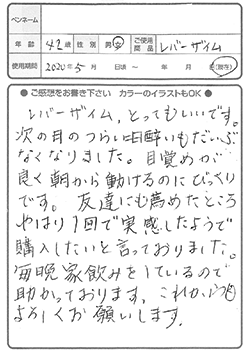 ペンネーム
年齢 42歳 性別 男・女 ご使用商品 レバーザイム
使用期間 2020年5月 日頃 ~ 年 月 (現在)
● ご感想をお書き下さい カラーのイラストもOK ●
レバーザイム、とってもいいです。
次の日のつらい二日酔いもだいぶ
なくなりました。目覚めが
良く朝から動けるのにびっくり
です。友達にも薦めたところ
やはり1回で実感したようで
購入したいと言っておりました。
毎晩家飲みをしているので
助かっております。これからも
よろしくお願いします。